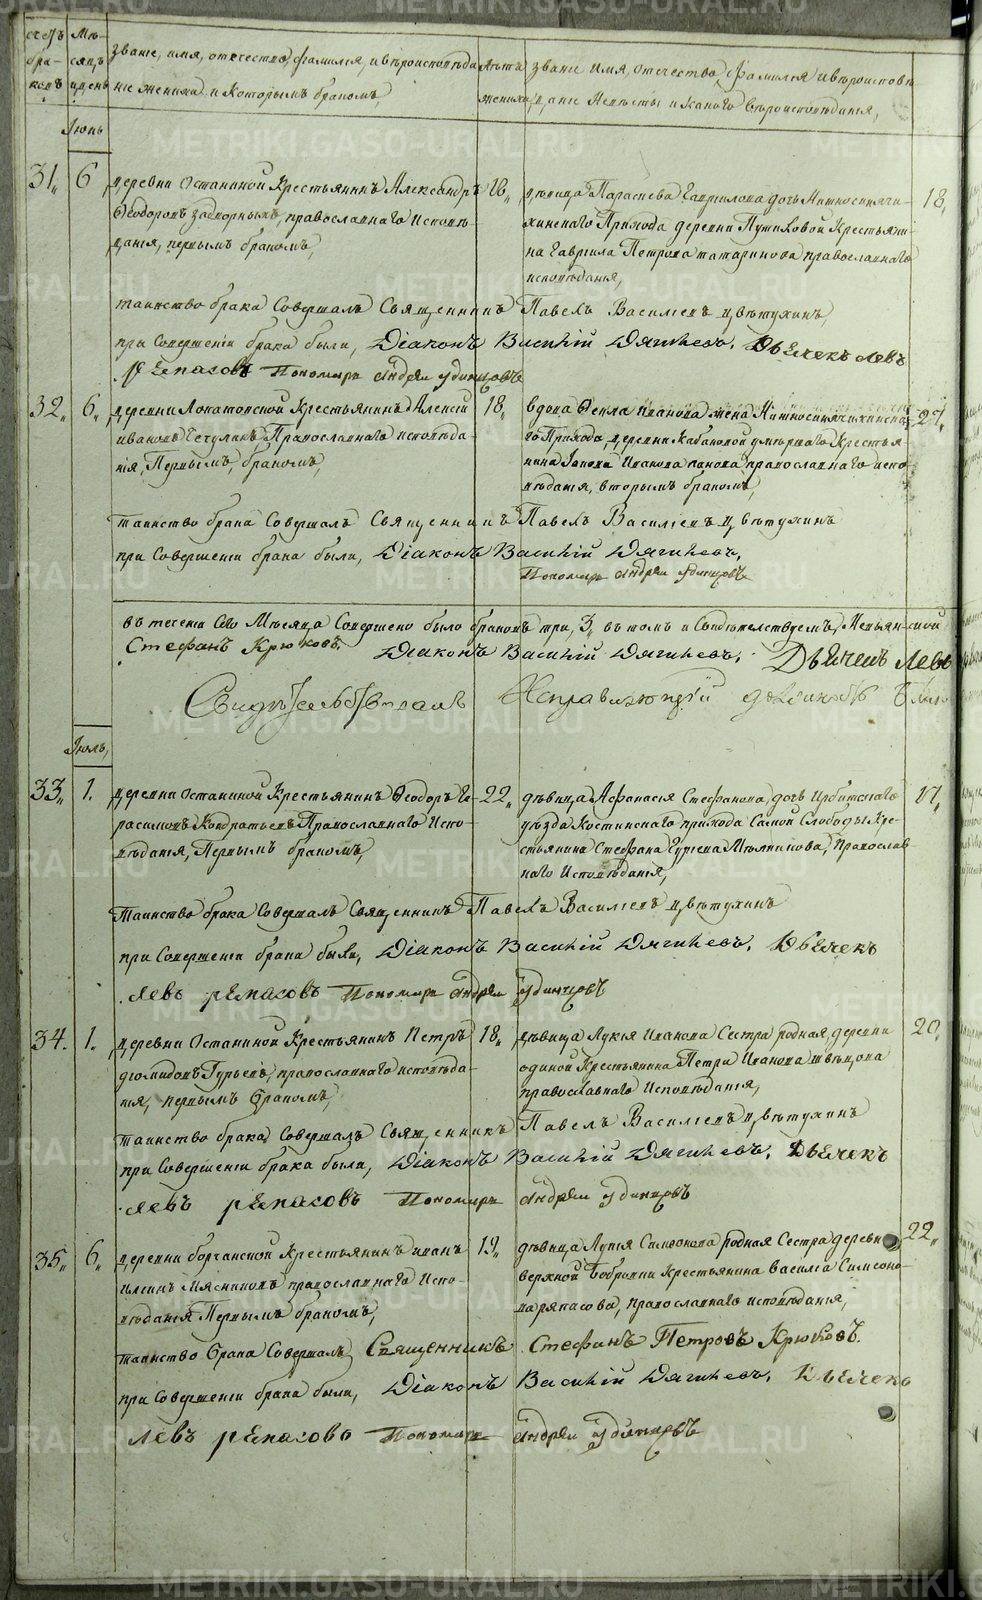 счетъ бра- ковъ
Мѣ- сяцъ и день
званіе, имя, отечество, фамилія, и вѣроисповѣда
ніе жениха и которымъ бракомъ,
лѣта жениха,
званіе имя, отечество, фамилія и вѣроисповѣ
даніе Невѣсты и какого вѣроисповѣданія,
Іюнь
31, 6 деревни Останиной Крестьянинъ Александръ
Ѳеодоровъ православнаго Исповѣ-
данія, первымъ бракомъ,
дѣвица Параскева Гаврилова дочь Нижносинячи-
хинскаго Прихода деревни Путиловой Крестьяни-
на Гаврила Петрова татаринова православнаго
исповѣданія,
18,
таинство брака Совершалъ Священникъ Павелъ Василіевъ Цвѣтухинъ,
при Совершеніи брака были, Діаконъ Василій Дягилевъ. Дьячекъ Левъ
Рѣпасовъ Пономарь Андрей Удинцовъ
32, 6, деревни Лопатовской Крестьянинъ Алексій 18,
ивановъ Чечулинъ Православнаго исповѣда-
нія, Первымъ, бракомъ,
вдова Ѳекла иванова жена Нижносинячихинска-
го Прихода, деревни Кабановой умершаго Крестья-
нина Иванова панова православнаго испо
вѣданія, вторымъ бракомъ,
27,
таинство брака Совершалъ Священникъ Павелъ Василіевъ Цвѣтухинъ
при Совершеніи брака были, Діаконъ Василій Дягилевъ,
Пономарь Андрей Удинцовъ
въ теченіи Сего Мѣсяца Совершено было браковъ три, 3, въ томъ и Свидѣтелствуемъ,
Стефанъ Крюковъ. Діаконъ Василій Дягилевъ. Дьячекъ Левъ
Свидѣтельствовалъ Исправляющій должность
Іюль,
33, 1. деревни Останиной Крестьянинъ Ѳеодоръ Ге- 22,
расимовъ Кондратьевъ Православнаго Испо-
вѣданія, Первымъ бракомъ,
дѣвица Афанасія Стефанова, дочь Ирбитскаго
уѣзда Костинскаго прихода Самой Слободы Кре-
стьянина Стефана Гурьева Мѣлникова, Православ-
наго Исповѣданія,
17,
Таинство брака Совершалъ Священникъ Павелъ Василіевъ Цвѣтухинъ
при Совершеніи брака были, Діаконъ Василій Дягилевъ. Дьячекъ
Левъ Рѣпасовъ Пономарь Андрей Удинцовъ
34. 1. деревни Останиной Крестьянинъ Петръ 18,
діомидовъ Гурьевъ, православнаго исповѣда-
нія, первымъ бракомъ,
дѣвица Лукія Иванова Сестра родная, деревни
одиной Крестьянина Петра Иванова швецова
православнаго Исповѣданія,
20,
таинство брака Совершалъ Священникъ Павелъ Василіевъ Цвѣтухинъ
при Совершеніи брака были, Діаконъ Василій Дягилевъ. Дьячекъ
Левъ Рѣпасовъ Пономарь Андрей Удинцовъ
35, 6, деревни борчанской Крестьянинъ иванъ 19,
илиинъ Мясниковъ православнаго Испо-
вѣданія Первымъ бракомъ,
дѣвица Лукія Симеонова родная Сестра деревни
верхной Бобровки Крестьянина василіа Симеоно-
ва ряпасова, православнаго исповѣданія,
22,
таинство брака Совершалъ, Священникъ Стефанъ Петровъ Крюковъ.
при Совершеніи брака были, Діаконъ Василій Дягилевъ. Дьячекъ
Левъ Рѣпасовъ Пономарь Андрей Удинцовъ
METRIKI.GASO-URAL.RU